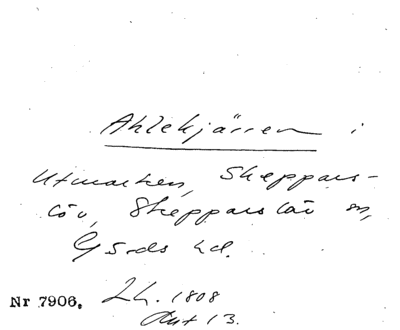 Ahlekjärren i
Utmarken, Skeppars-
löv, Skepparslöv sn,
Gärds hd.
Nr 7906. Lh. 1808
Akt 13.